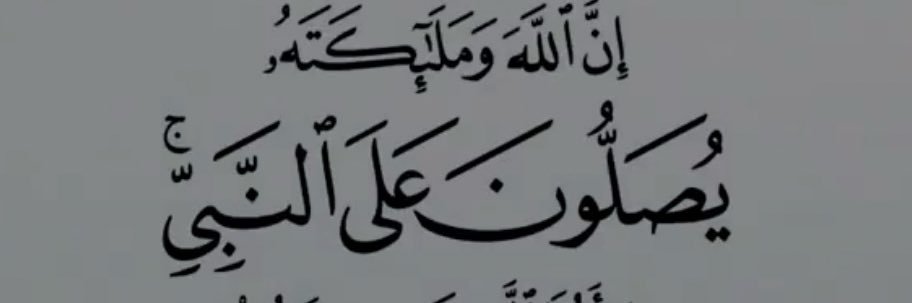 إِنَّ ٱللَّهَ وَمَلَـٰٓئِكَتَهُۥ
يُصَلُّونَ عَلَى ٱلنَّبِىِّ ۚ